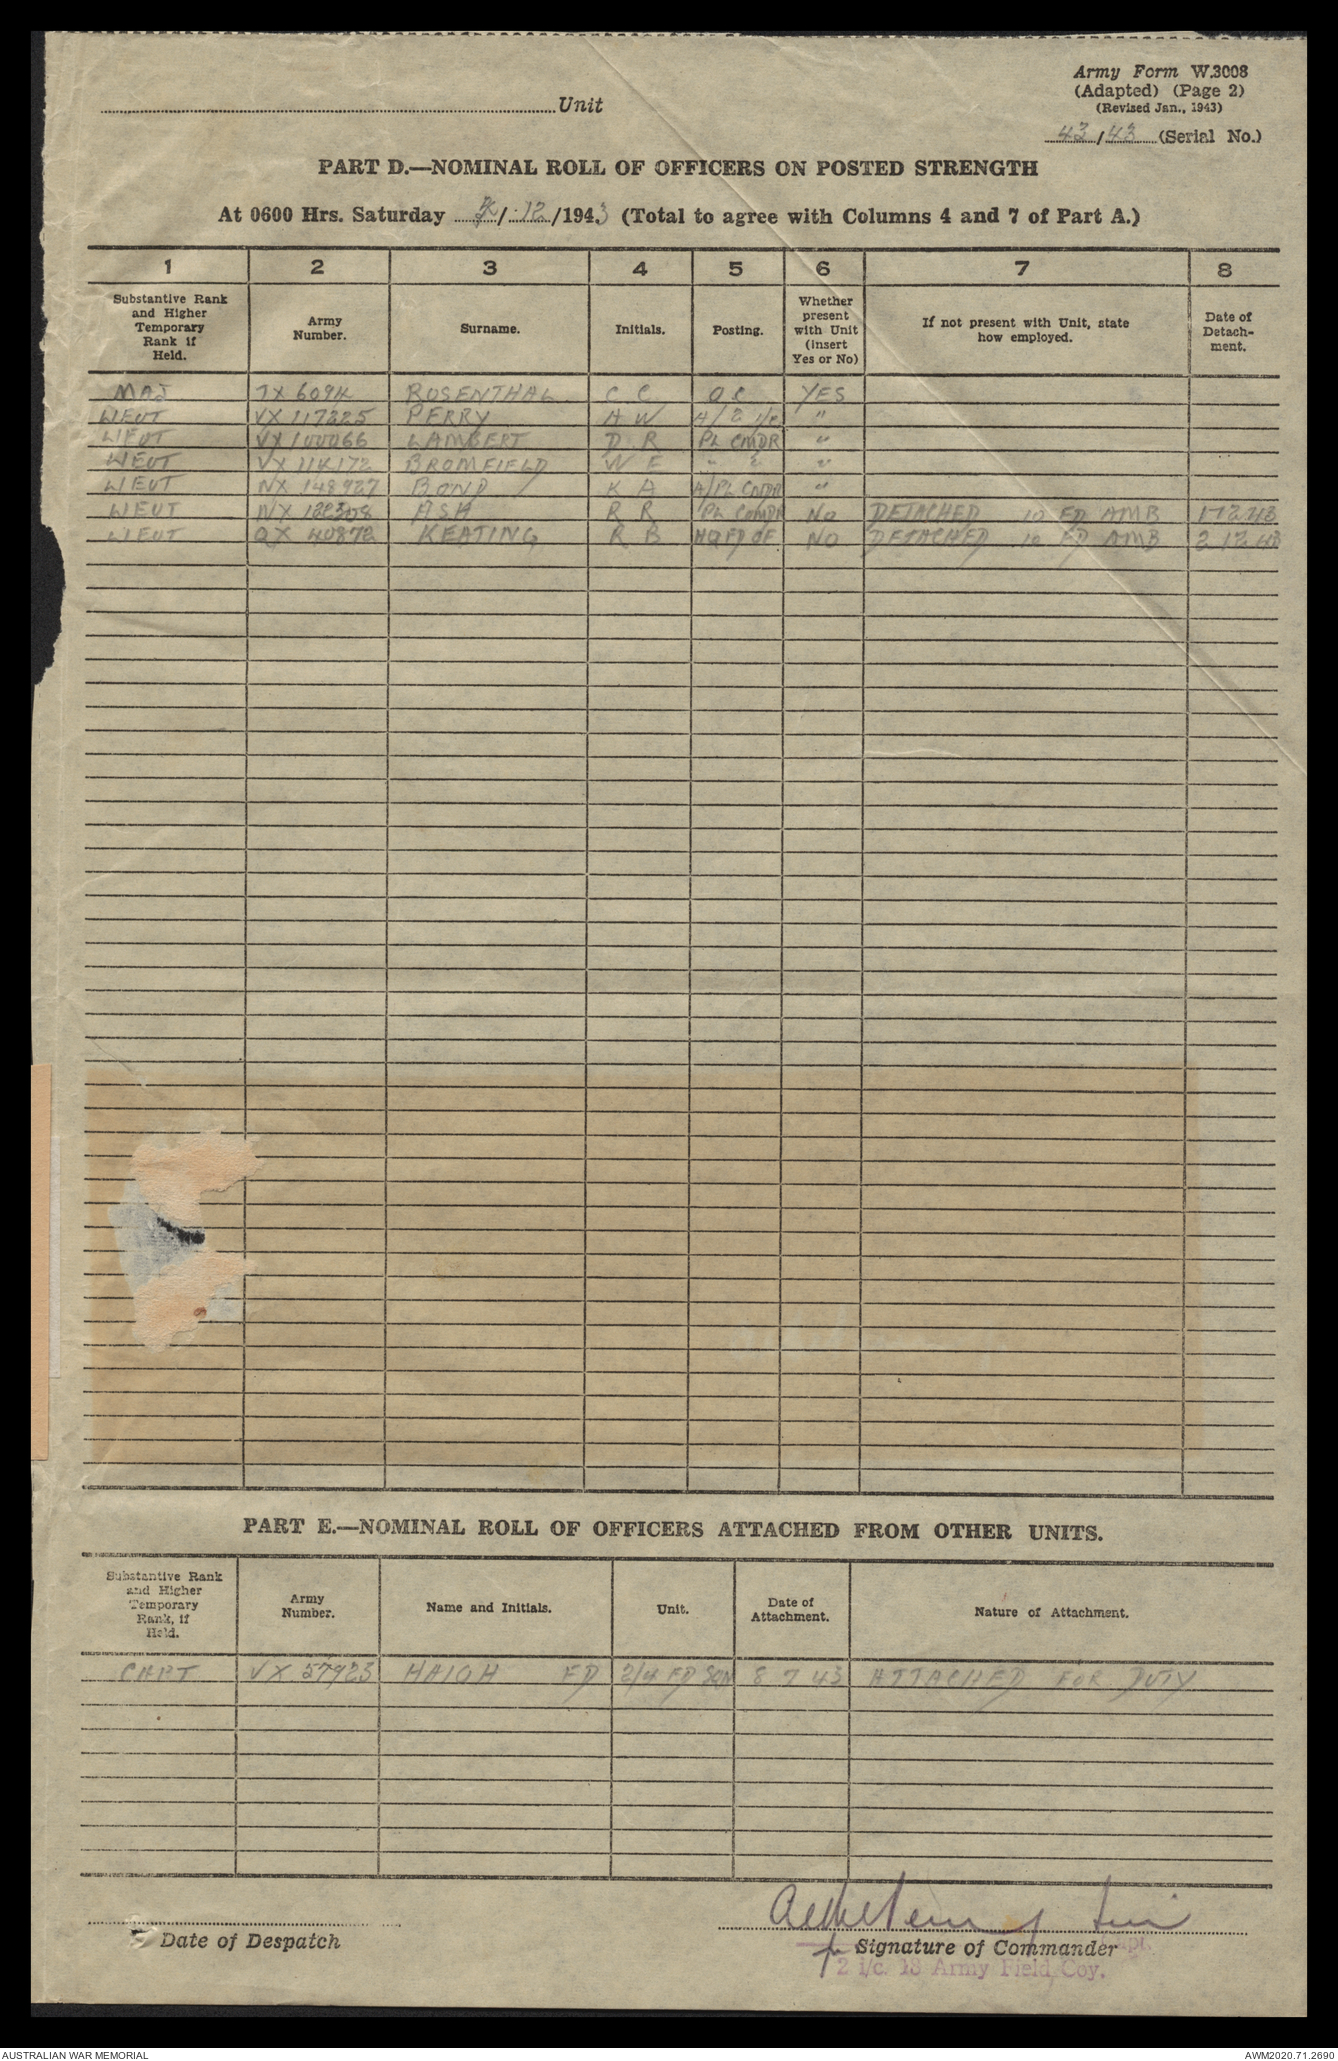 Unit
Army Form W.3008
(Adapted) (Page 2)
(Revised Jan., 1943)
43/43 (Serial No.)
PART D.—NOMINAL ROLL OF OFFICERS ON POSTED STRENGTH
At 0600 Hrs. Saturday /12/1943 (Total to agree with Columns 4 and 7 of Part A.)
1 2 3 4 5 6 7 8
Substantive Rank and Higher Temporary Rank if Held. Army Number. Surname. Initials. Posting. Whether present with Unit (insert Yes or No) If not present with Unit, state how employed. Date of Detachment.
MAJ TX 6094 ROSENTHAL C C OC YES
LIEUT VX 117225 PERRY A W A/2 i/c "
LIEUT VX 100066 LAMBERT D R PL CMDR "
LIEUT VX 114172 BROMFIELD W E " " "
LIEUT NX 148927 BOND K A A/PL CMDR "
LIEUT NX ASH R R PL COMDR NO DETACHED 10 FD AMB
LIEUT QX 40872 KEATING R B NO DETACHED 10 FD AMB 2 12 43
PART E.—NOMINAL ROLL OF OFFICERS ATTACHED FROM OTHER UNITS.
Substantive Rank and Higher Temporary Rank, if Held. Army Number. Name and Initials. Unit. Date of Attachment. Nature of Attachment.
CAPT VX 57923 HAIGH FD 2/4 FD SQN 8 7 43 ATTACHED FOR DUTY
Date of Despatch
Signature of Commander
Capt.
2 i/c. 18 Army Field Coy.
AUSTRALIAN WAR MEMORIAL
AWM2020.71.2690